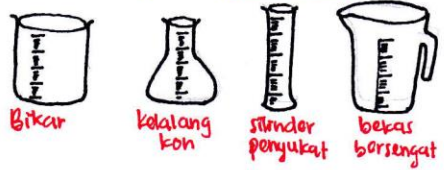 Bikar
kelalang
kon
silinder
penyukat
bekas
bersengat